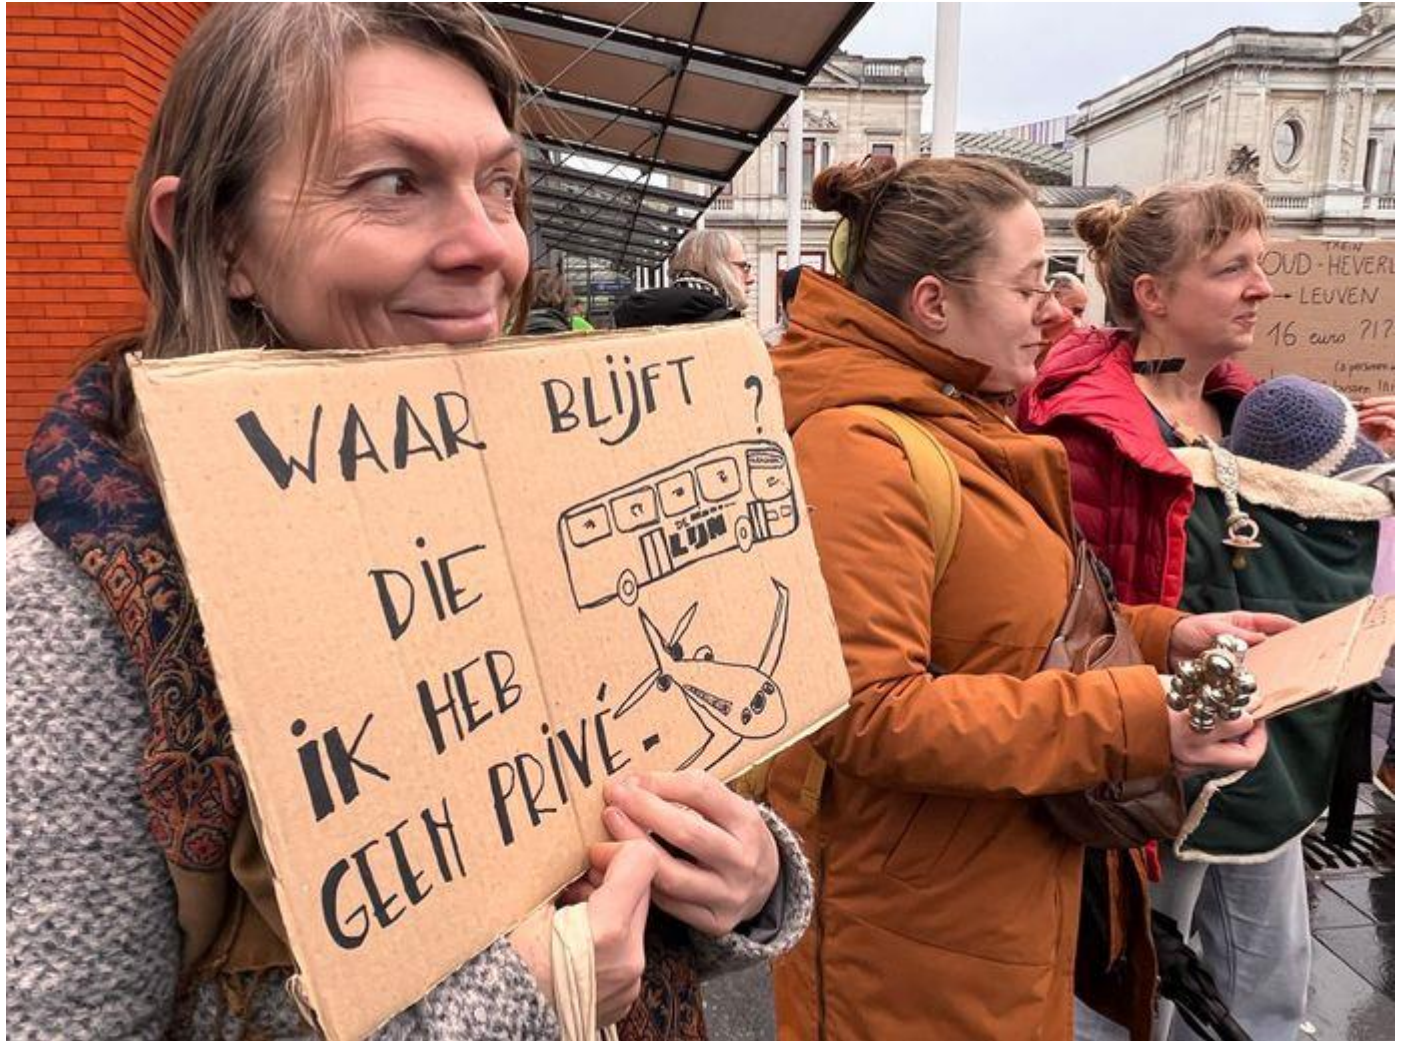 WAAR BLIJFT ?
DIE
DE
LIJN
IK HEB
GEEN PRIVÉ-
TREIN
OUD-HEVERL
→ LEUVEN
16 euro ?!?